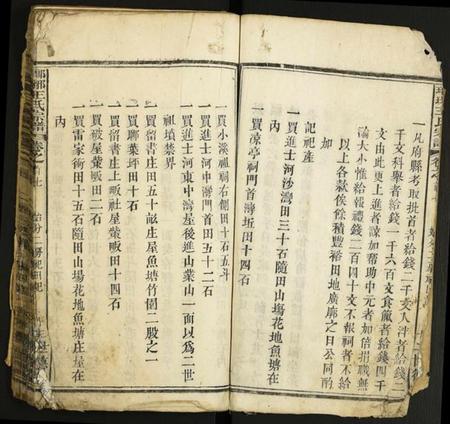 一凡府縣考取批首者給錢二千文入泮者給錢二
千文科舉者給錢一千六百文食廩者給錢四千
文由此更上進者諒加幫助中元者加倍捐職無
論大小惟給報禮錢二百四十文不報祠者不給
以上各款俟餘積豐裕田地廣廓之日公同酌
記祀產
一買進士河沙灣田三十石隨田山塲花地魚塘在
內
一買涼亭祠門首灣坵田十四石
一買小溪祖祠右側田十石五斗
一買進士河中灣門首田五十二石
一買進士河東中灣屋後進山葉山一面以爲二世
祖墳禁界
一買留書庄田五十畝庄屋魚塘竹園二股之一
一買聊葉坪田十石
一買留書庄上畈社屋䓨畈田十四石
一買破屋䓨畈田二石
一買雷家衕田十五石隨田山塲花地魚塘庄屋在
內
瑯琊王氏宗譜 卷之首